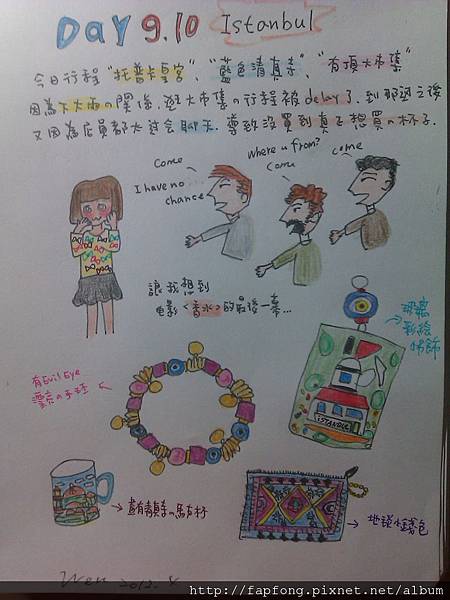 Day 9.10 Istanbul
今日行程"托普卡皇宮"、"藍色清真寺"、"有頂大市集"
因為下大雨の關係,逛大市集の行程被delay了.到那邊之後
又因為店員都太過会聊天.導致沒買到真正想買の杯子.
Come
I have no ...
chance
where u from?
Come
come
讓我想到
電影<香水>的最後一幕...
玻璃
彩繪
吊飾
有Evil Eye
漂亮の手環
ISTANBUL
畫有清真寺の馬克杯
地毯小錢包
Wen 2012.
http://fapfong.pixnet.net/album